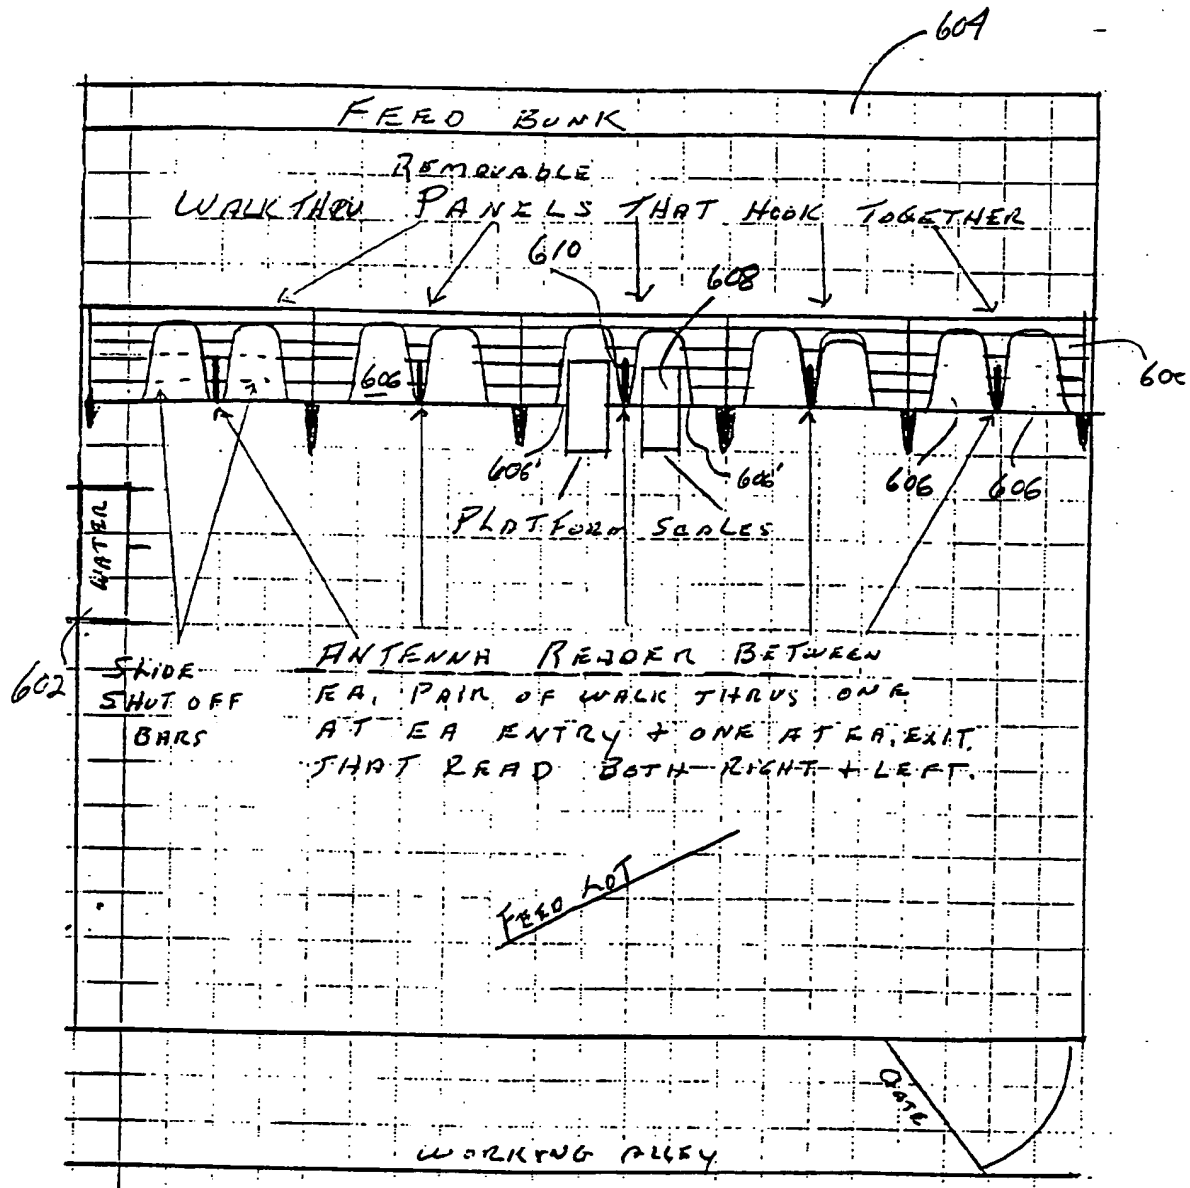 604
FEED BUNK
REMOVABLE
WALK THRU PANELS THAT HOOK TOGETHER
610
608
606
606'
606'
606
606
PLATFORM SCALES
WATER
602
SLIDE
SHUT OFF
BARS
ANTENNA READER BETWEEN
EA. PAIR OF WALK THRUS ONE
AT EA ENTRY & ONE AT EA. EXIT.
THAT READ BOTH RIGHT & LEFT.
FEED LOT
GATE
WORKING ALLEY